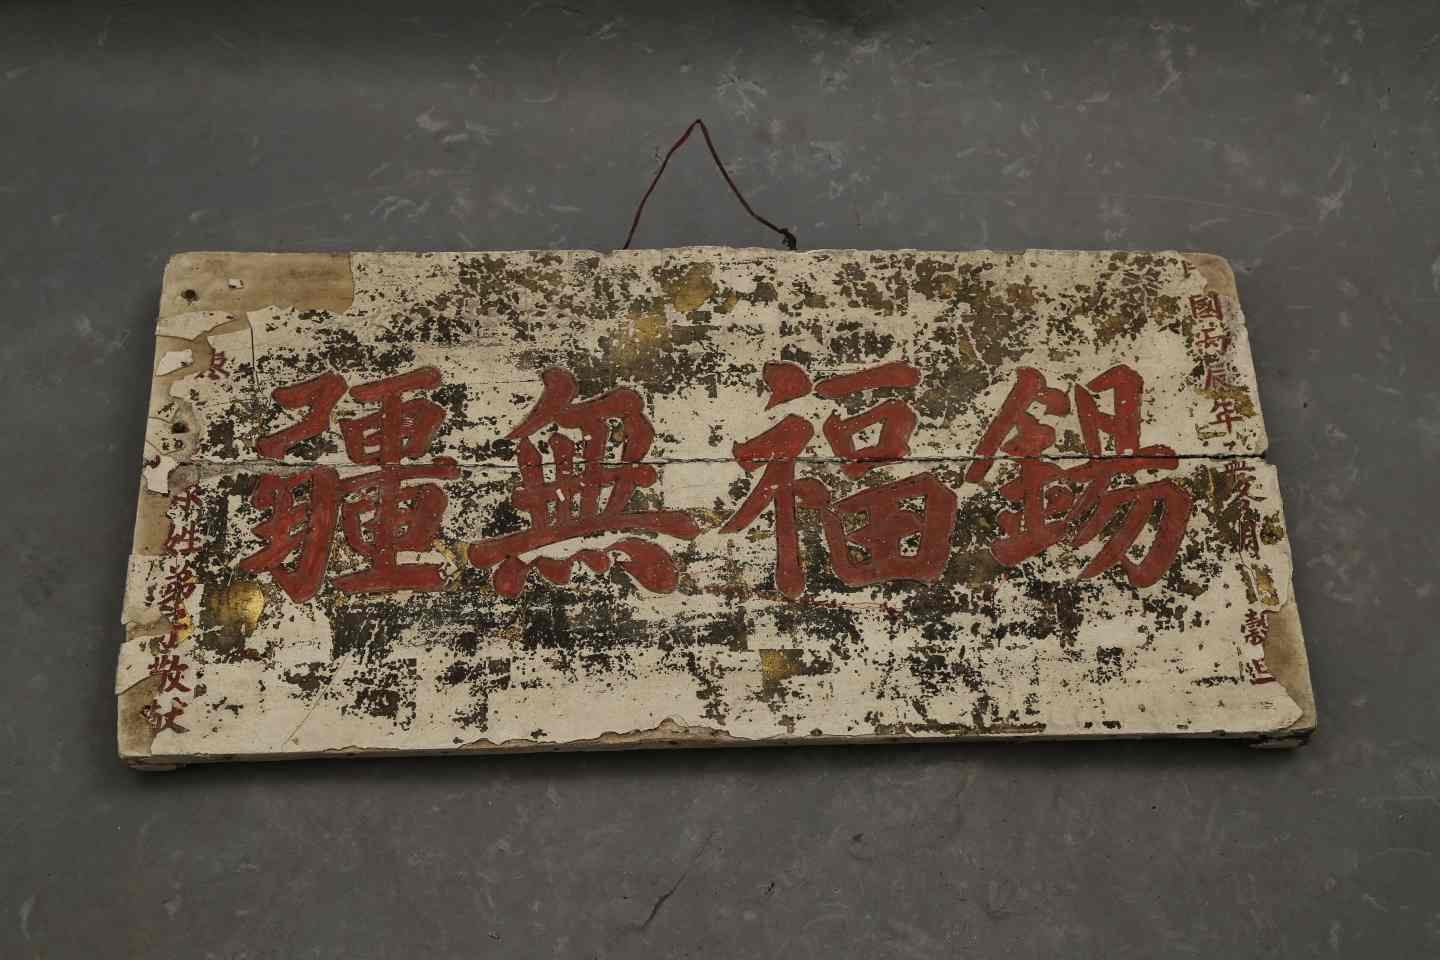 國丙辰年月穀旦
錫福無疆
姓弟子敬献